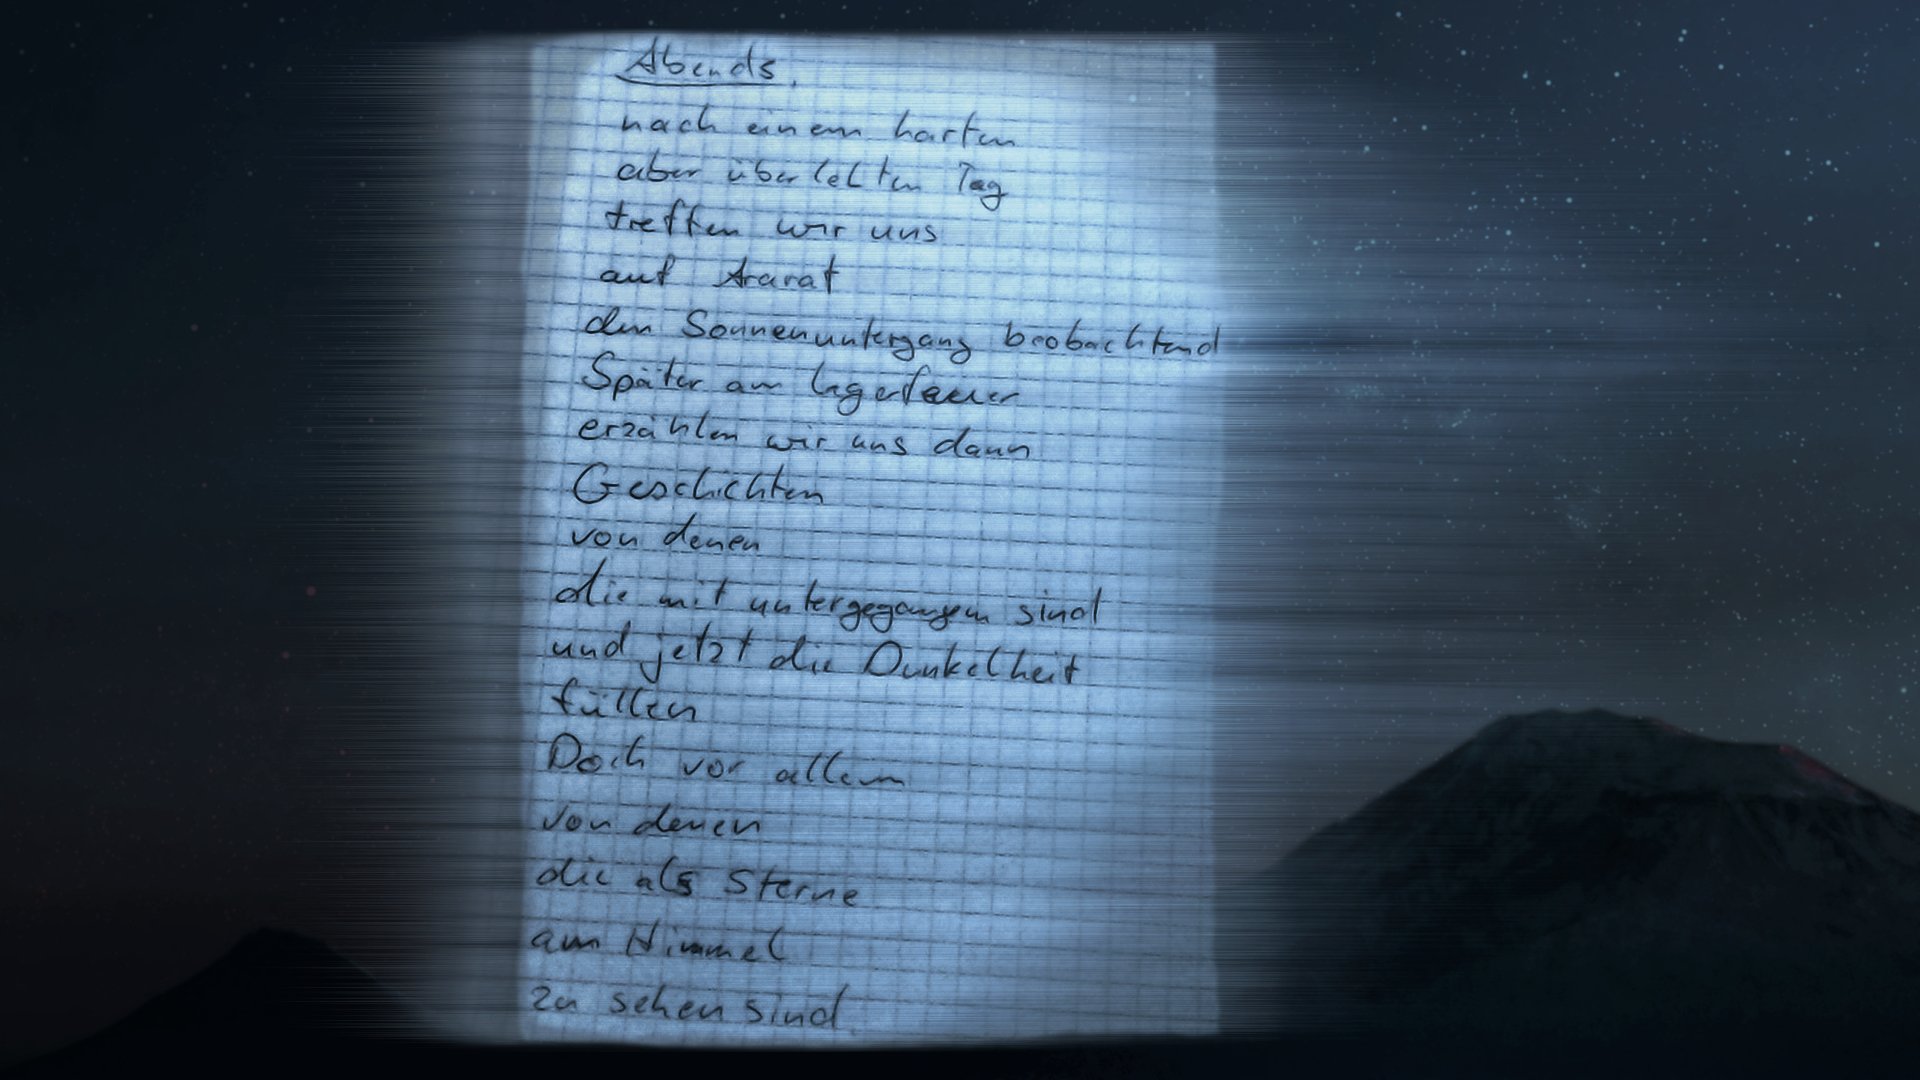 Abends.
nach einem harten
aber überlebten Tag
treffen wir uns
auf Ararat
den Sonnenuntergang beobachtend
Später am Lagerfeuer
erzählen wir uns dann
Geschichten
von denen
die mit untergegangen sind
und jetzt die Dunkelheit
füllen
Doch vor allem
von denen
die als Sterne
am Himmel
zu sehen sind.